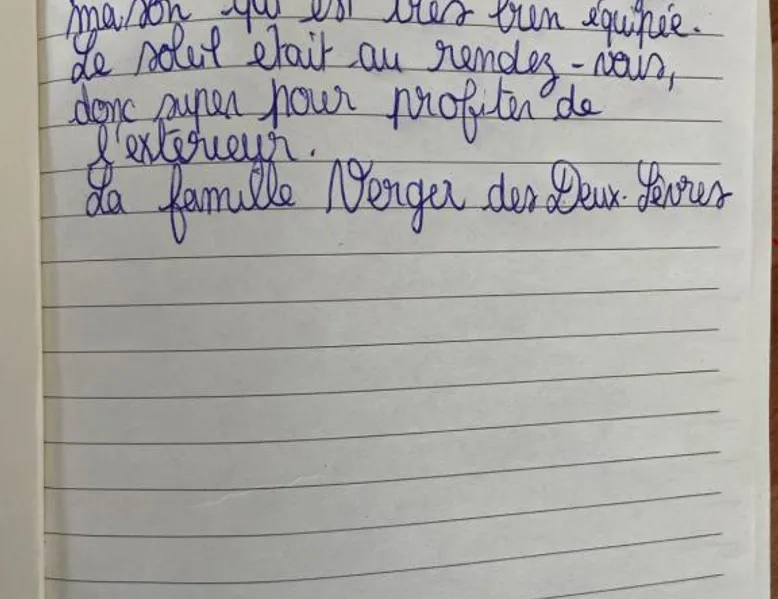 maison qui est très bien équipée.
Le soleil était au rendez-vous,
donc super pour profiter de
l'extérieur.
La famille Verger des Deux-Sèvres